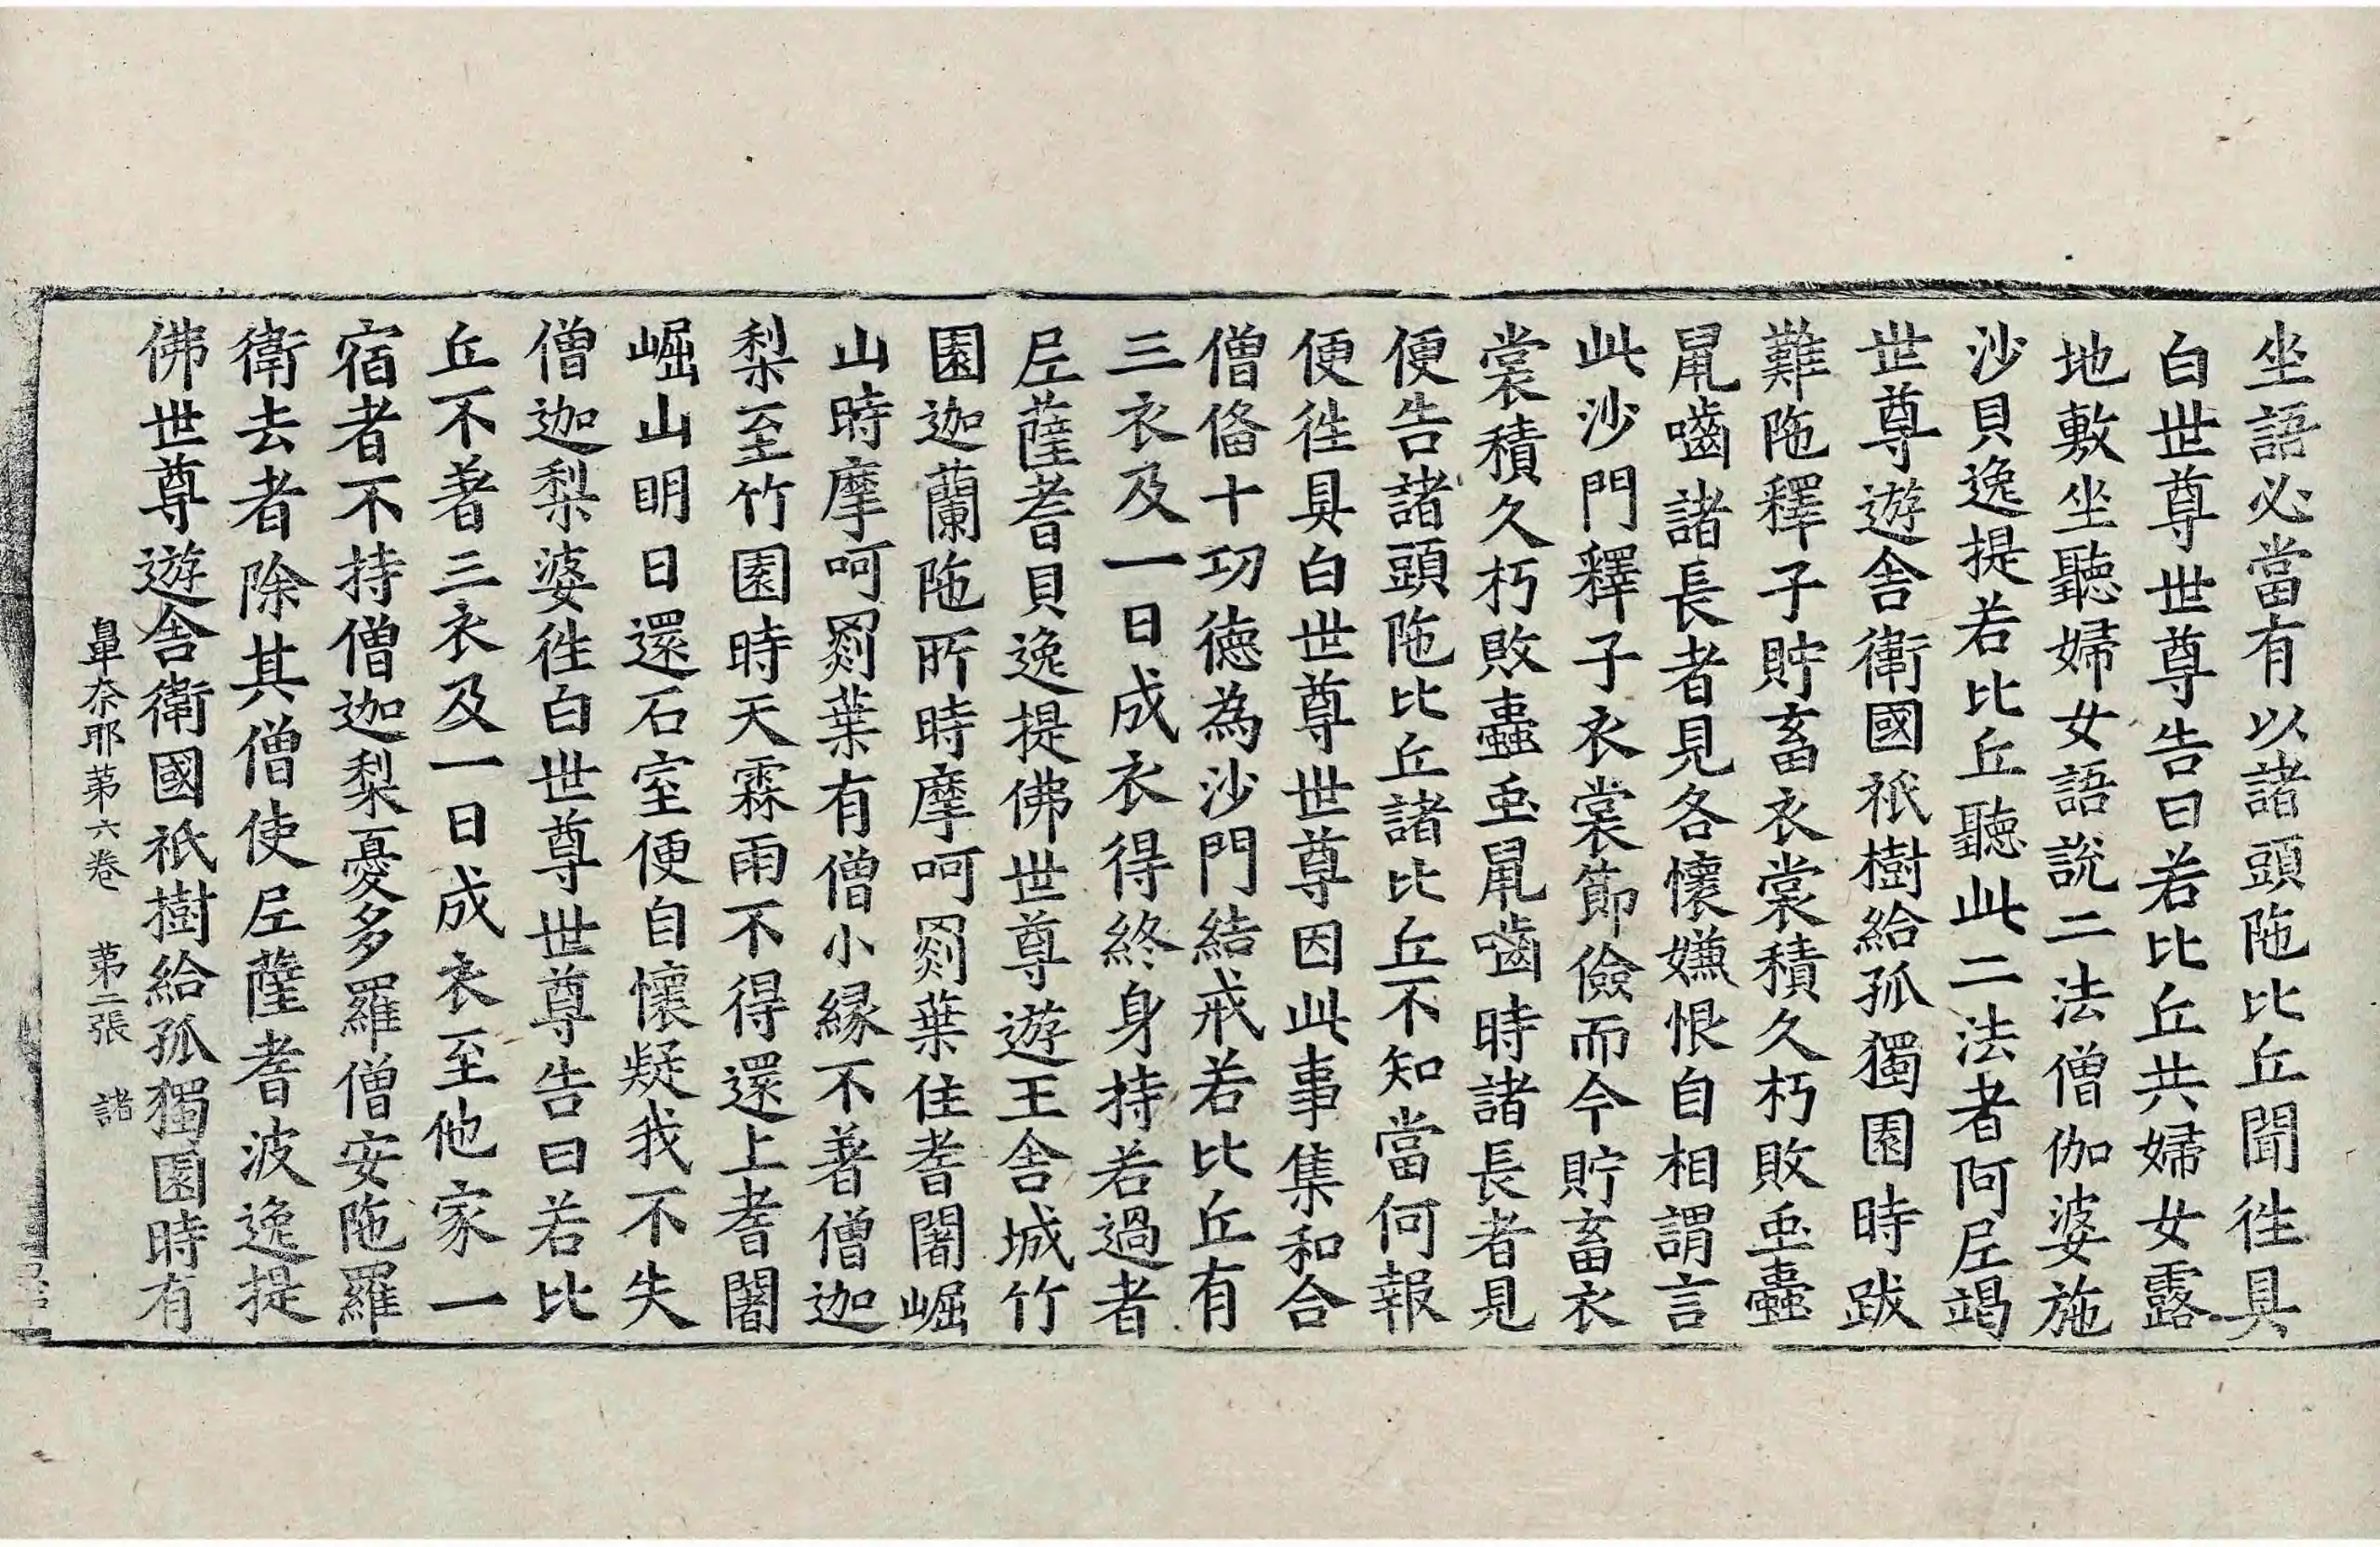 坐語必當有以諸頭陁比丘聞徃具
白世尊世尊告曰若比丘共婦女露
地敷坐聽婦女語說二法僧伽婆施
沙貝逸提若比丘聽此二法者阿𡰱竭
世尊遊舍衛國祇樹給孤獨園時跋
難陁釋子貯畜衣裳積久朽敗䖝蠹
鼠嚙諸長者見各懷嫌恨自相謂言
此沙門釋子衣裳節儉而今貯畜衣
裳積久朽敗蠹䖝鼠嚙時諸長者見
便告諸頭陁比丘諸比丘不知當何報
便徃具白世尊世尊因此事集和合
僧俻十功德為沙門結戒若比丘有
三衣及一日成衣得終身持若過者
𡰱薩耆貝逸提佛世尊遊王舍城竹
園迦蘭陁所時摩呵罽葉住耆闍崛
山時摩呵罽葉有僧小緣不著僧迦
梨至竹園時天霖雨不得還上耆闍
崛山明日還石室便自懷疑我不失
僧迦梨婆徃白世尊世尊告曰若比
丘不著三衣及一日成衣至他家一
宿者不持僧迦梨憂多羅僧安陁羅
衛去者除其僧使𡰱薩耆波逸提
佛世尊遊舍衛國祇樹給孤獨園時有
鼻奈耶第六卷 第二張 諸